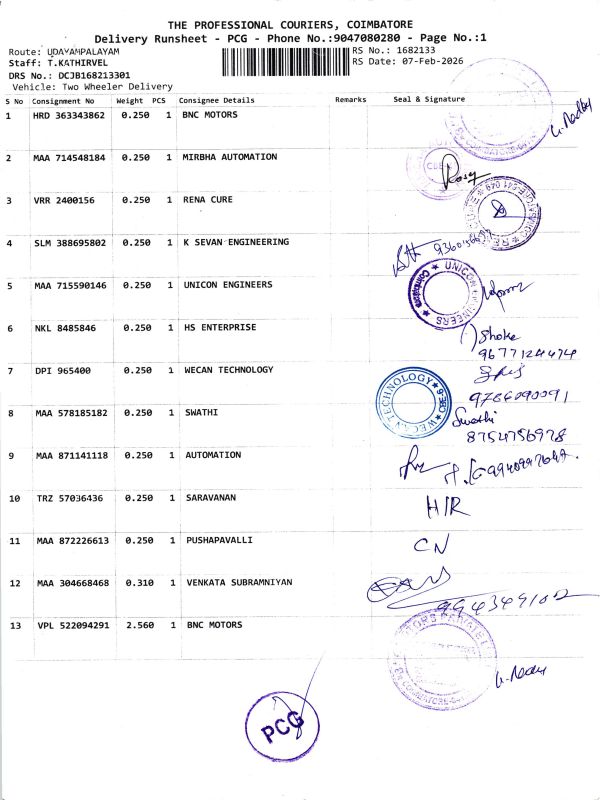 THE PROFESSIONAL COURIERS, COIMBATORE
Delivery Runsheet - PCG - Phone No.:9047080280 - Page No.:1
Route: UDAYAMPALAYAM
Staff: T.KATHIRVEL
DRS No.: DCJB168213301
Vehicle: Two Wheeler Delivery
RS No.: 1682133
RS Date: 07-Feb-2026
S No Consignment No Weight PCS Consignee Details Remarks Seal & Signature
1 HRD 363343862 0.250 1 BNC MOTORS
2 MAA 714548184 0.250 1 MIRBHA AUTOMATION
Rosy
3 VRR 2400156 0.250 1 RENA CURE
4 SLM 388695802 0.250 1 K SEVAN ENGINEERING
5 MAA 715590146 0.250 1 UNICON ENGINEERS
UNICON ENGINEERS
6 NKL 8485846 0.250 1 HS ENTERPRISE
Shoke
9677124474
7 DPI 965400 0.250 1 WECAN TECHNOLOGY
WECAN TECHNOLOGY
8 MAA 578185182 0.250 1 SWATHI
Swathi
8754756978
9 MAA 871141118 0.250 1 AUTOMATION
10 TRZ 57036436 0.250 1 SARAVANAN
H/R
11 MAA 872226613 0.250 1 PUSHAPAVALLI
CN
12 MAA 304668468 0.310 1 VENKATA SUBRAMNIYAN
13 VPL 522094291 2.560 1 BNC MOTORS
PCG